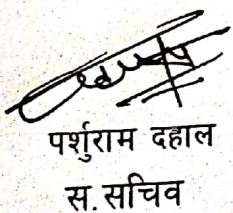 पर्शुराम दहाल
स.सचिव